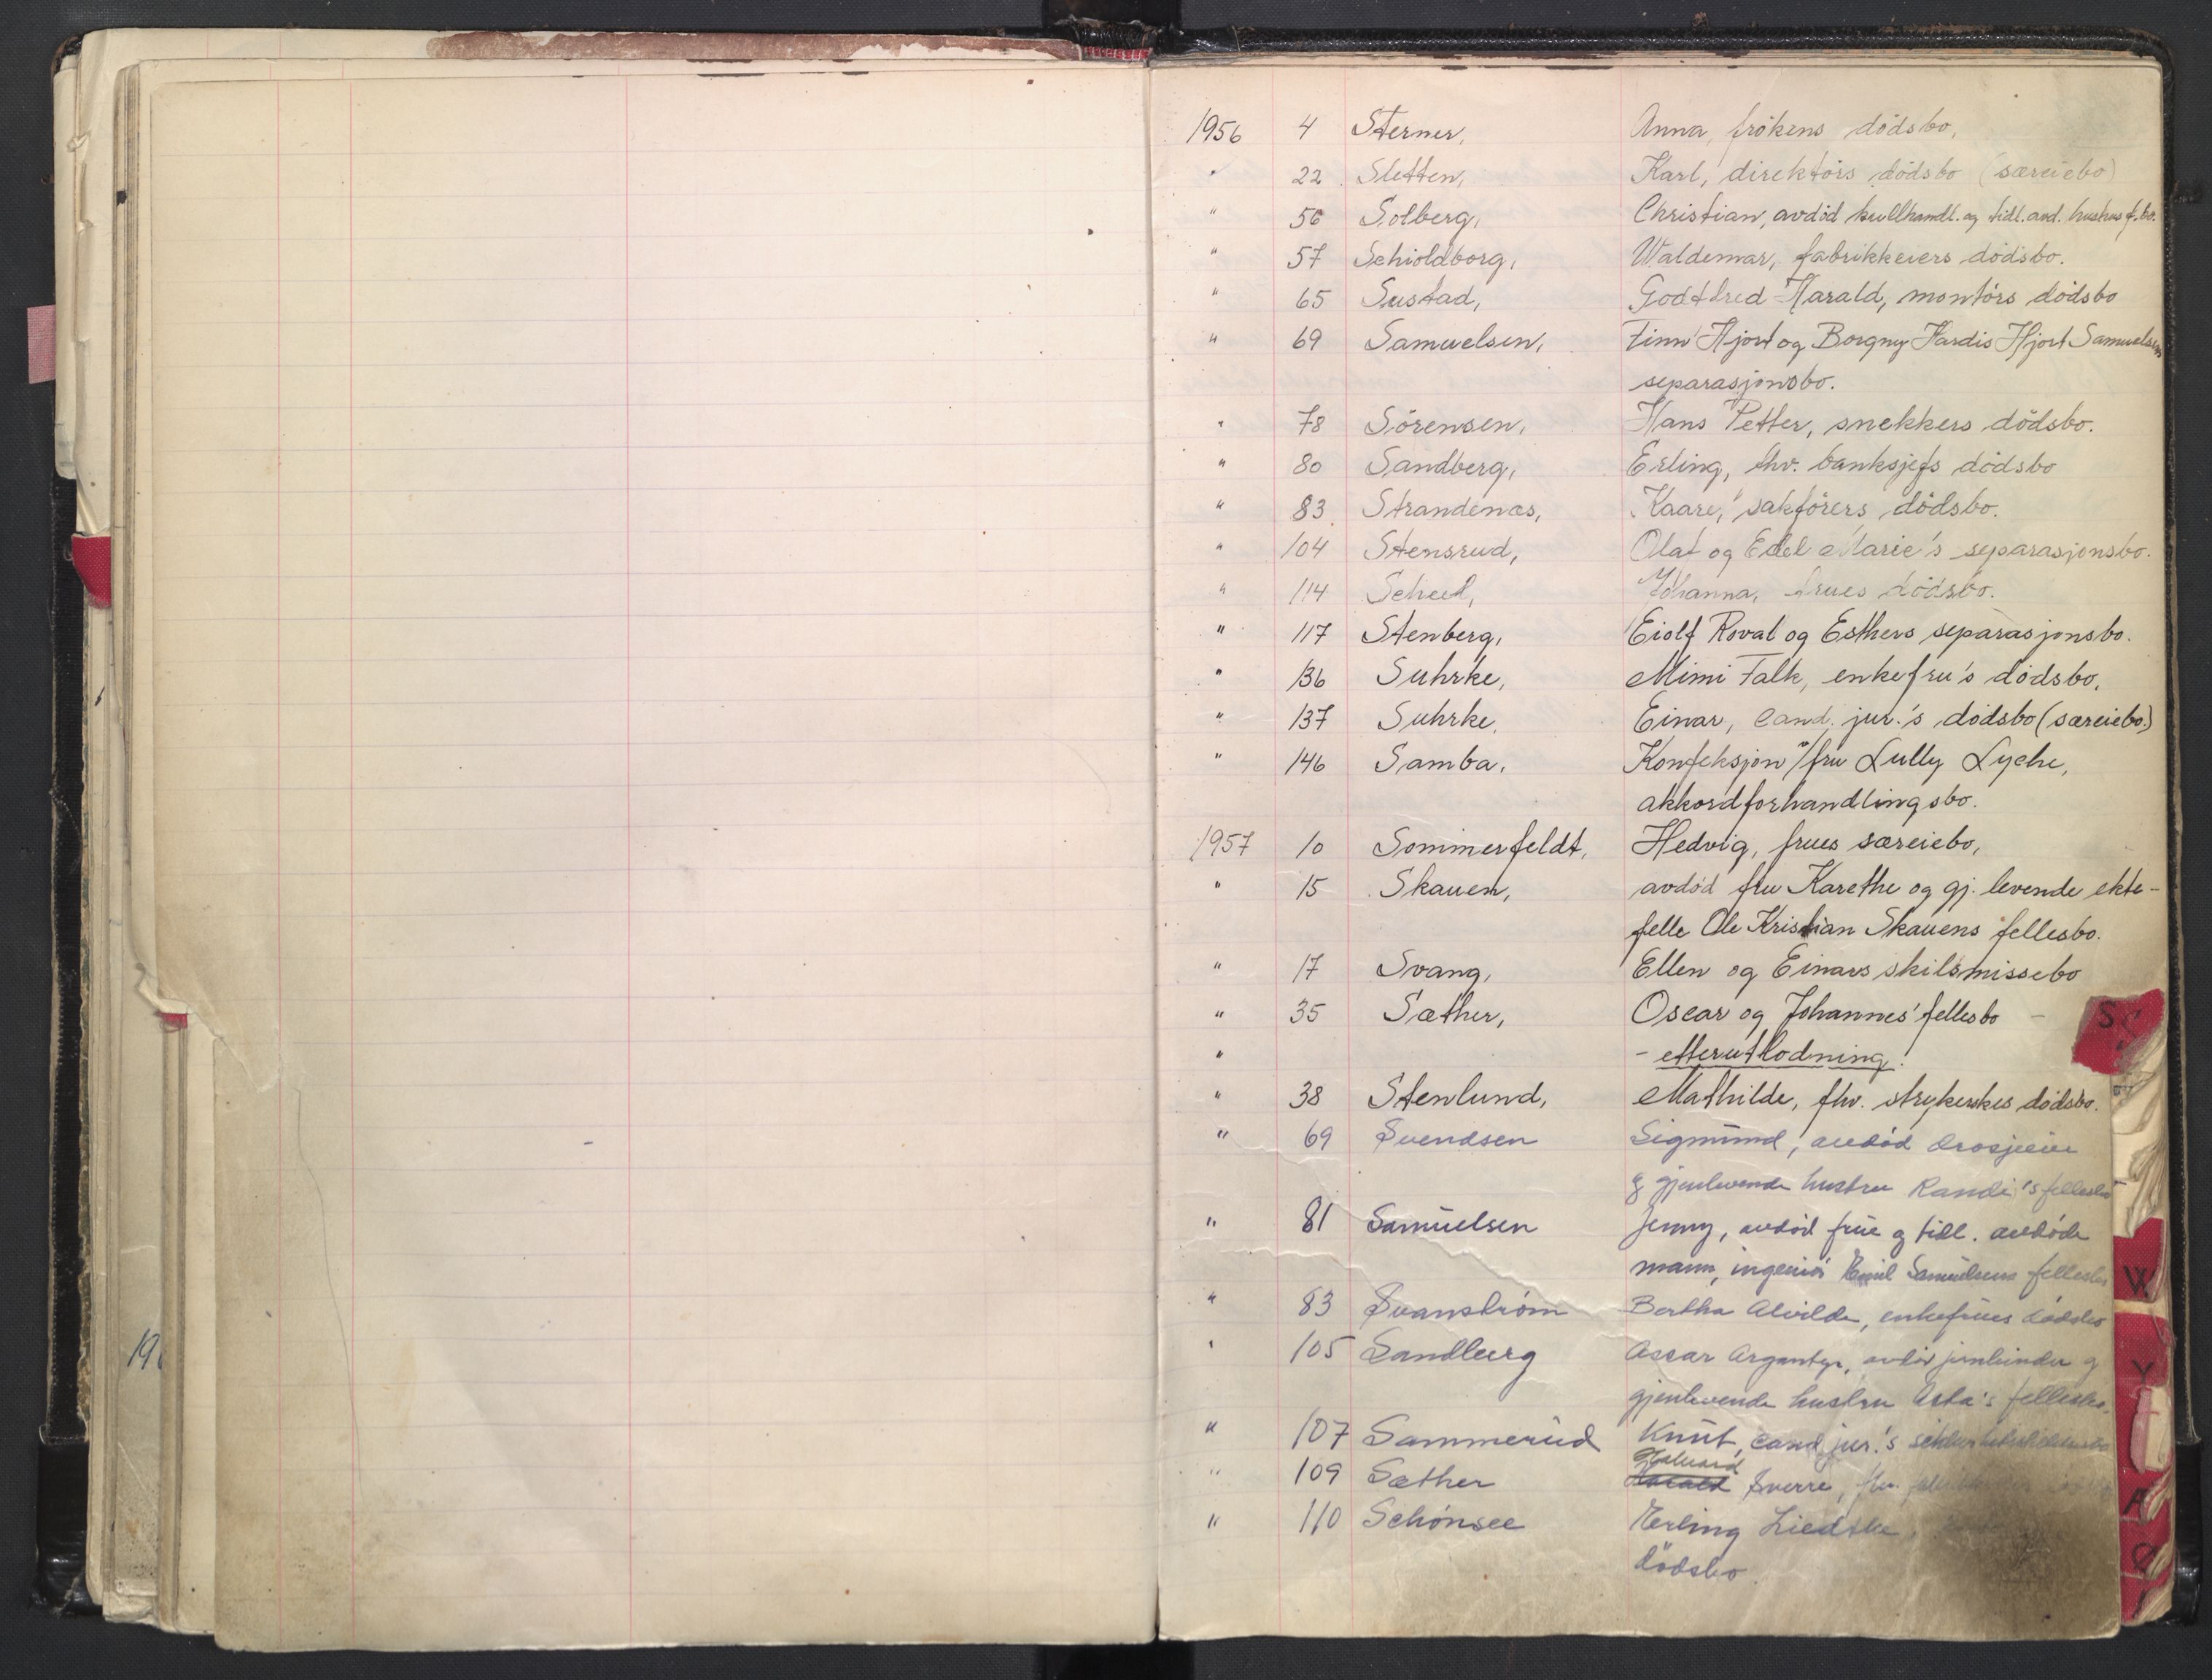 1956 4 Sterner, Anna, frökens dödsbo,
" 22 Sletten, Karl, direktörs dödsbo (særeiebo)
" 56 Solberg, Christian, avdöd kullhandl. og tidl. avd. hustrus f.bo.
" 57 Schioldborg, Waldemar, fabrikkeiers dödsbo.
" 65 Sustad, Godtfred Harald, montörs dödsbo
" 69 Samuelsen, Finn Hjort og Borgny Hardis Hjort Samuelsens
separasjonsbo.
" 78 Sörensen, Hans Petter, snekkers dödsbo.
" 80 Sandberg, Erling, fhv. banksjefs dödsbo
" 83 Strandenæs, Kaare, sakförers dödsbo.
" 104 Stensrud, Olaf og Edel Marie's separasjonsbo.
" 114 Scheel, Johanna, frues dödsbo.
" 117 Stenberg, Eiolf Roval og Esthers separasjonsbo.
" 136 Suhrke, Mimi Falk, enkefru's dödsbo,
" 137 Suhrke, Einar, cand. jur.'s dödsbo (særeiebo)
" 146 Samba, Konfeksjon v/fru Lully Lyche,
akkordforhandlingsbo.
1957 10 Sommerfeldt, Hedvig, frues særeiebo,
" 15 Skauen, avdöd fru Karethe og gj. levende ekte-
felle Ole Kristian Skauens fellesbo.
" 17 Svang, Ellen og Einars skilsmissebo
" 35 Sæther, Oscar og Johannes' fellesbo -
" - etterutlodning.
" 38 Stenlund, Mathilde, fhv. strykerskes dödsbo.
" 69 Svendsen Sigmund, avdöd drosjeeier
og gjenlevende hustru Randi's fellesbo
" 81 Samuelsen Jenny, avdöd frue og tidl. avdöde
mann, ingeniör Emil Samuelsens fellesbo
" 83 Svanström Bertha Alvilde, enkefrues dödsbo
" 105 Sandberg Assar Argantyr, avdöd jernbinder og
gjenlevende hustru Asta's fellesbo.
" 107 Sammerud Knut, cand jur.'s
Halvard
" 109 Sæther Harald Sverre, fhv.
" 110 Schönsee Erling Liedtke,
dödsbo.
S
W
Y
Æ
Ø
19